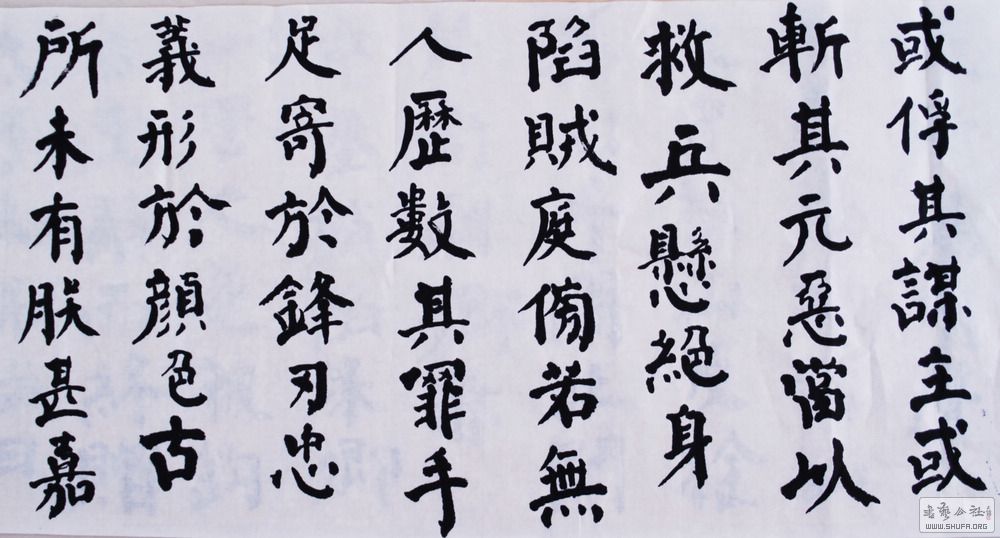 或俘其謀主或
斬其元惡當以
救兵懸絕身
陷賊庭傍若無
人歷數其罪手
足寄於鋒刃忠
義形於顏色古
所未有朕甚嘉
WWW.SHUFA.ORG